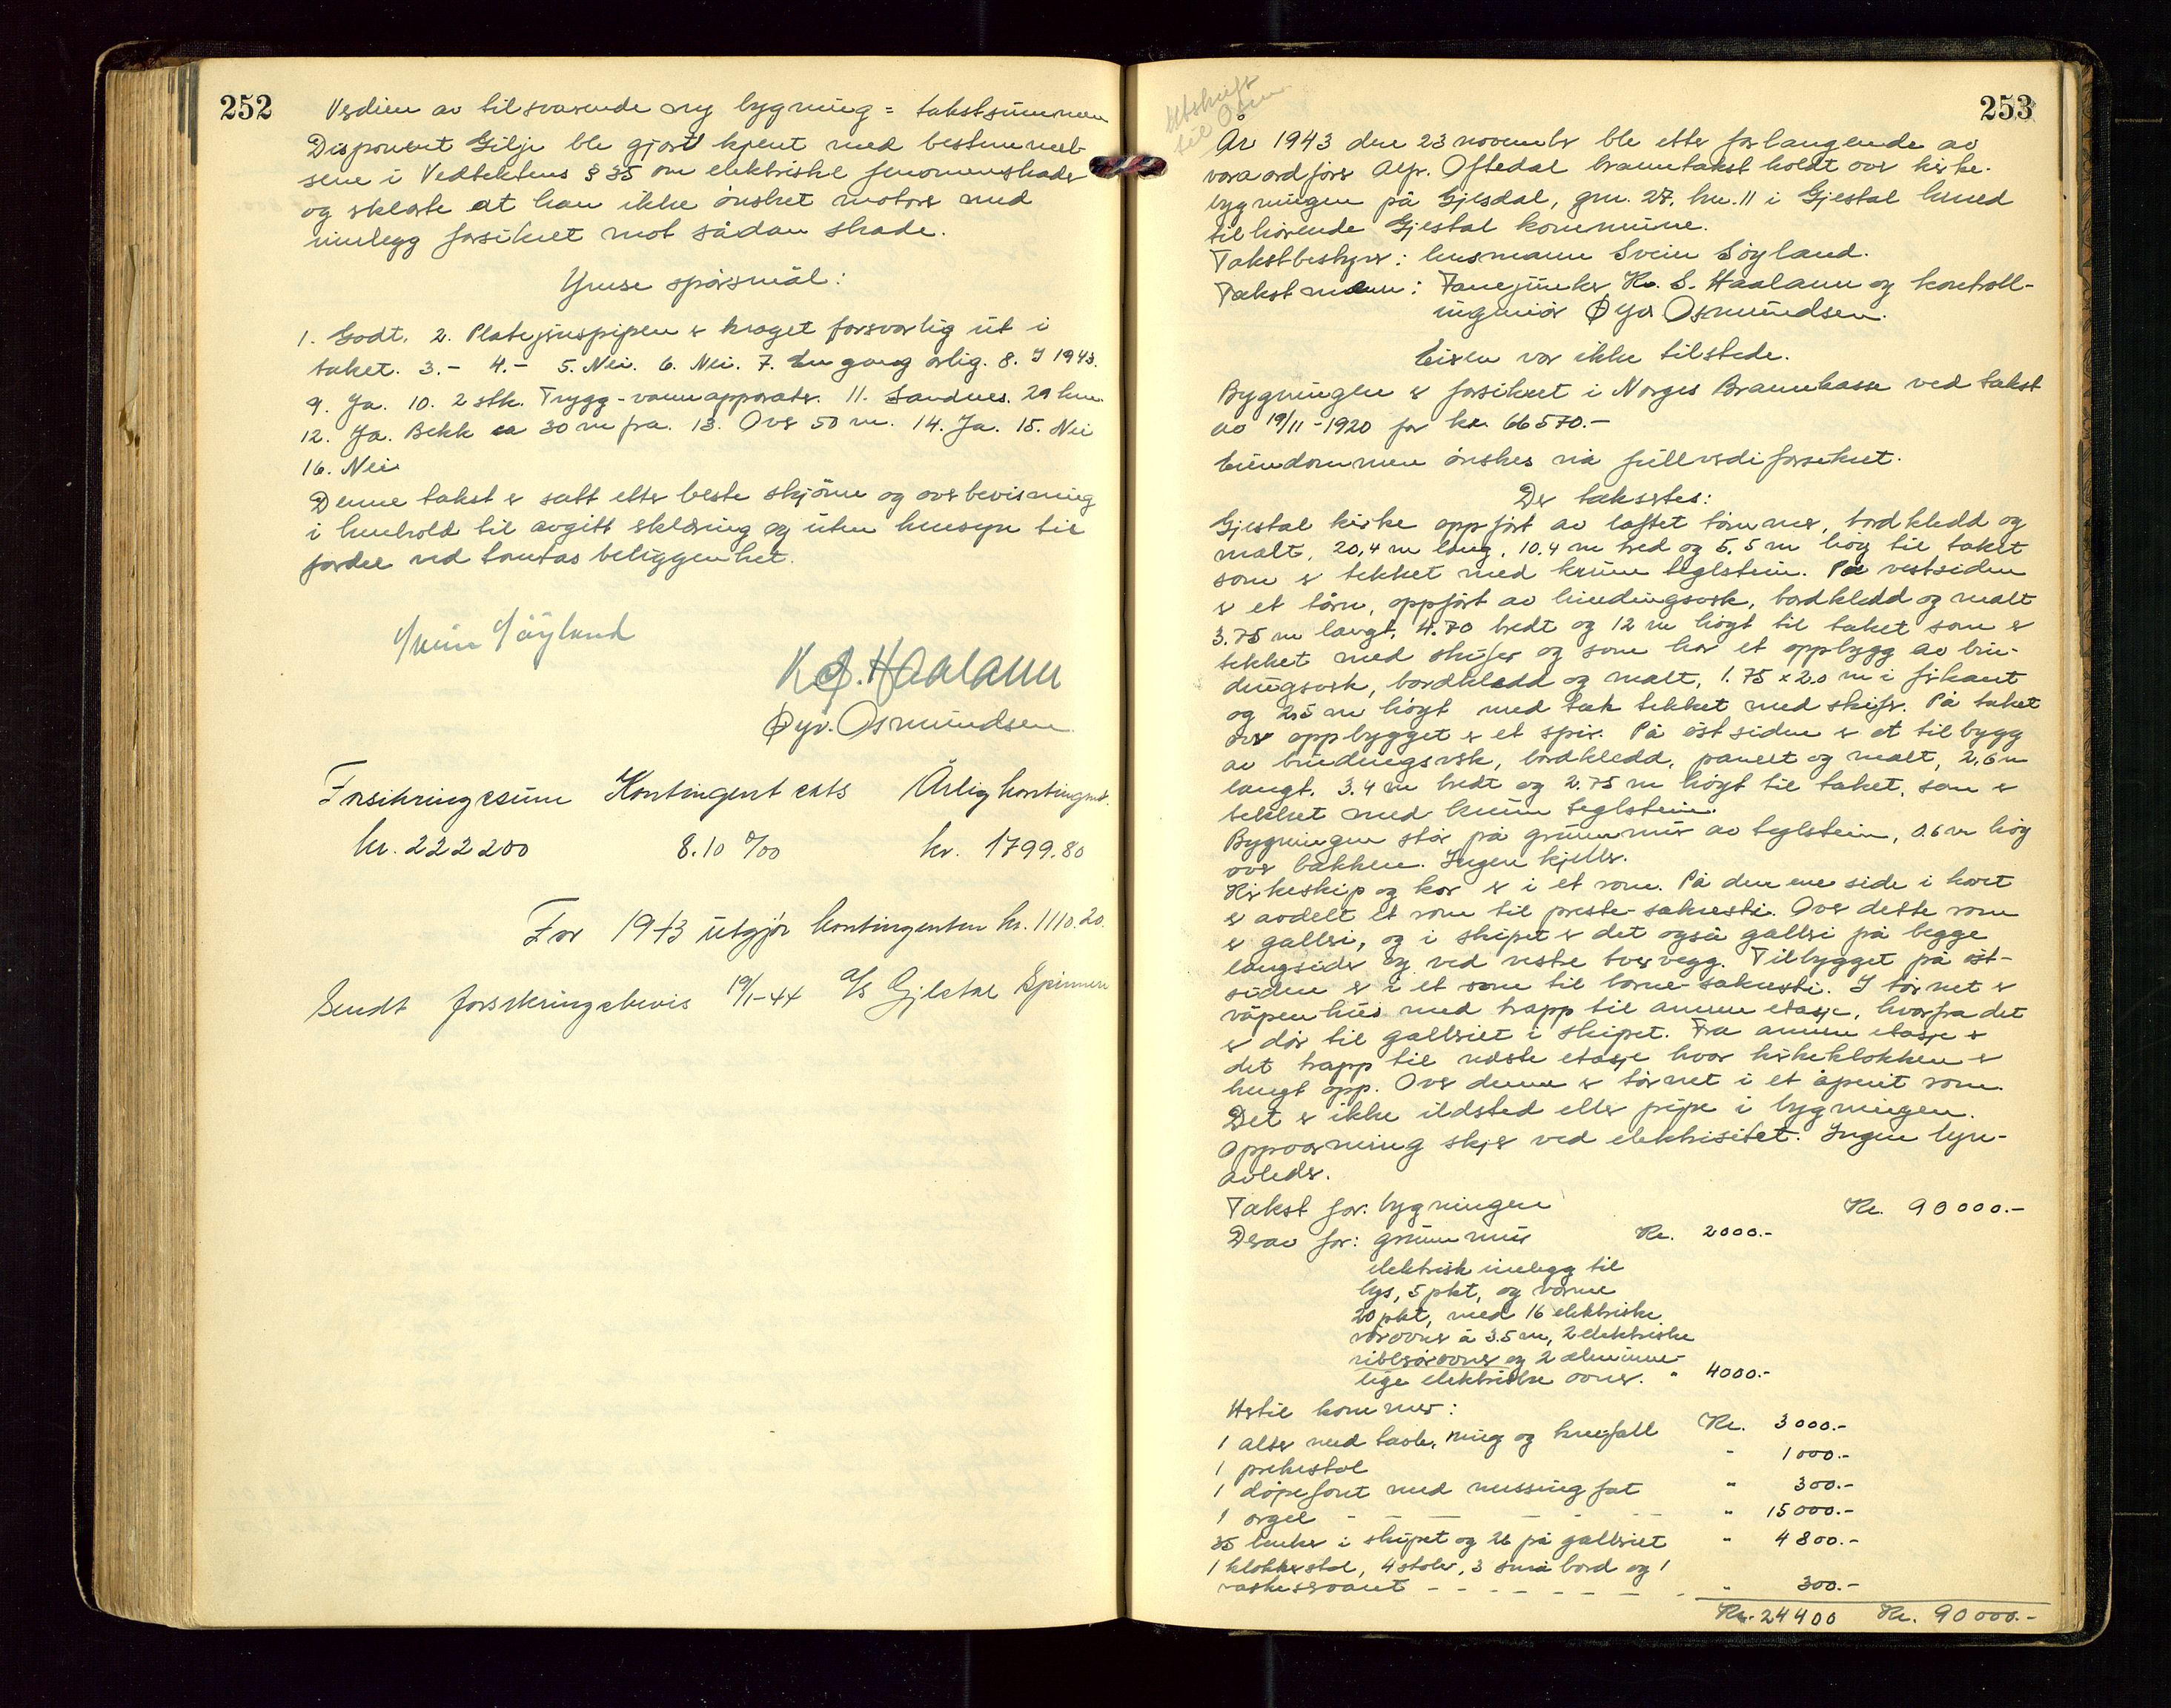 252
Verdien av tilsvarende ny bygning = takstsummen
Disponent Gilje ble gjort kjent med bestemmel-
sene i Vedtektens § 35 om elektriske fenomenskader
og erklærte at han ikke ønsket motorer med
innlegg forsikret mot sådan skade.
Ymse spørsmål:
1. Godt. 2. Platejernspipen er kraget forsvarlig ut i
taket. 3.- 4.- 5. Nei. 6. Nei. 7. En gang årlig. 8. I 1943.
9. Ja. 10. 2 stk. Trygg-vannapparater. 11. Sandnes. 29 km.
12. Ja. Bekk ca 30 m fra. 13. Over 50 m. 14. Ja. 15. Nei
16. Nei
Denne takst er satt etter beste skjønn og overbevisning
i henhold til avgitt erklæring og uten hensyn til
fordel ved tomtas beliggenhet.
Svein Søyland
K. S. Haaland
Øyv. Osmundsen
Forsikringssum Kontingentsats Årlig kontingent.
kr. 222 200 8.10 ‰ kr. 1799.80
For 1943 utgjør kontingenten kr. 1110.20.
Sendt forsikringsbevis 19/1-44 A/S Gjestal Spinneri
253
Utskrift
til Osm.
År 1943 den 23 november ble etter forlangende av
varaordfører Alfr. Oftedal branntakst holdt over kirke-
bygningen på Gjesdal, gnr. 27, bnr. 11 i Gjestal herred
tilhørende Gjestal kommune.
Takstbestyrer: lensmann Svein Søyland.
Takstmenn: Fanejunker K. S. Haaland og kontroll-
ingeniør Øyv Osmundsen.
Eieren var ikke tilstede.
Bygningen er forsikret i Norges Brannkasse ved takst
av 19/11-1920 for kr. 66 570.-
Eiendommen ønskes nå fullverdiforsikret.
Der takseres:
Gjestal kirke oppført av laftet tømmer, bordkledd og
malt, 20,4 m lang, 10.4 m bred og 5.5 m høg til taket
som er tekket med krum teglstein. På vestsiden
er et tårn, oppført av bindingsverk, bordkledd og malt
3.75 m langt, 4.70 bredt og 12 m høgt til taket som er
tekket med skifer og som har et oppbygg av bin-
dingsverk, bordkledd og malt, 1.75 x 2.0 m i firkant
og 2,5 m høgt med tak tekket med skifer. På taket
over oppbygget er et spir. På østsiden er et tilbygg
av bindingsverk, bordkledd, panelt og malt, 2,6 m
langt, 3.4 m bredt og 2.75 m høgt til taket, som er
tekket med krum teglstein.
Bygningen står på grunnmur av teglstein, 0.6 m høg
over bakken. Ingen kjeller.
Kirkeskip og kor er i et rom. På den ene side i koret
er avdelt et rom til preste-sakresti. Over dette rom
er galleri, og i skipet er det også galleri på begge
langsider og ved vestre tverrvegg. Tilbygget på øst-
siden er i et rom til barne-sakresti. I tårnet er
våpenhus med trapp til annen etasje, hvorfra det
er dør til galleriet i skipet. Fra annen etasje er
det trapp til neste etasje hvor kirkeklokken er
hengt opp. Over denne er tårnet i et åpent rom.
Det er ikke ildsted eller pipe i bygningen.
Oppvarming skjer ved elektrisitet. Ingen lyn-
avleder.
Takst for: bygningen Kr. 90 000.-
Derav for: grunnmur Kr. 2000.-
elektrisk innlegg til
lys, 5 pkt, og varme
20 pkt, med 16 elektriske
rørovner à 3.5 m, 2 elektriske
ribberørovner og 2 alminne-
lige elektriske ovner. " 4000.-
Hertil kommer:
1 alter med tavle, ring og knefall Kr. 3 000.-
1 prekestol " 1 000.-
1 døpefont med messingfat " 300.-
1 orgel - - - - - " 15 000.-
35 benker i skipet og 26 på galleriet " 4 800.-
1 klokkerstol, 4 stoler, 3 små bord og 1
vaskeservant - - - - - - " 300.-
Kr. 24 400 Kr. 90 000.-